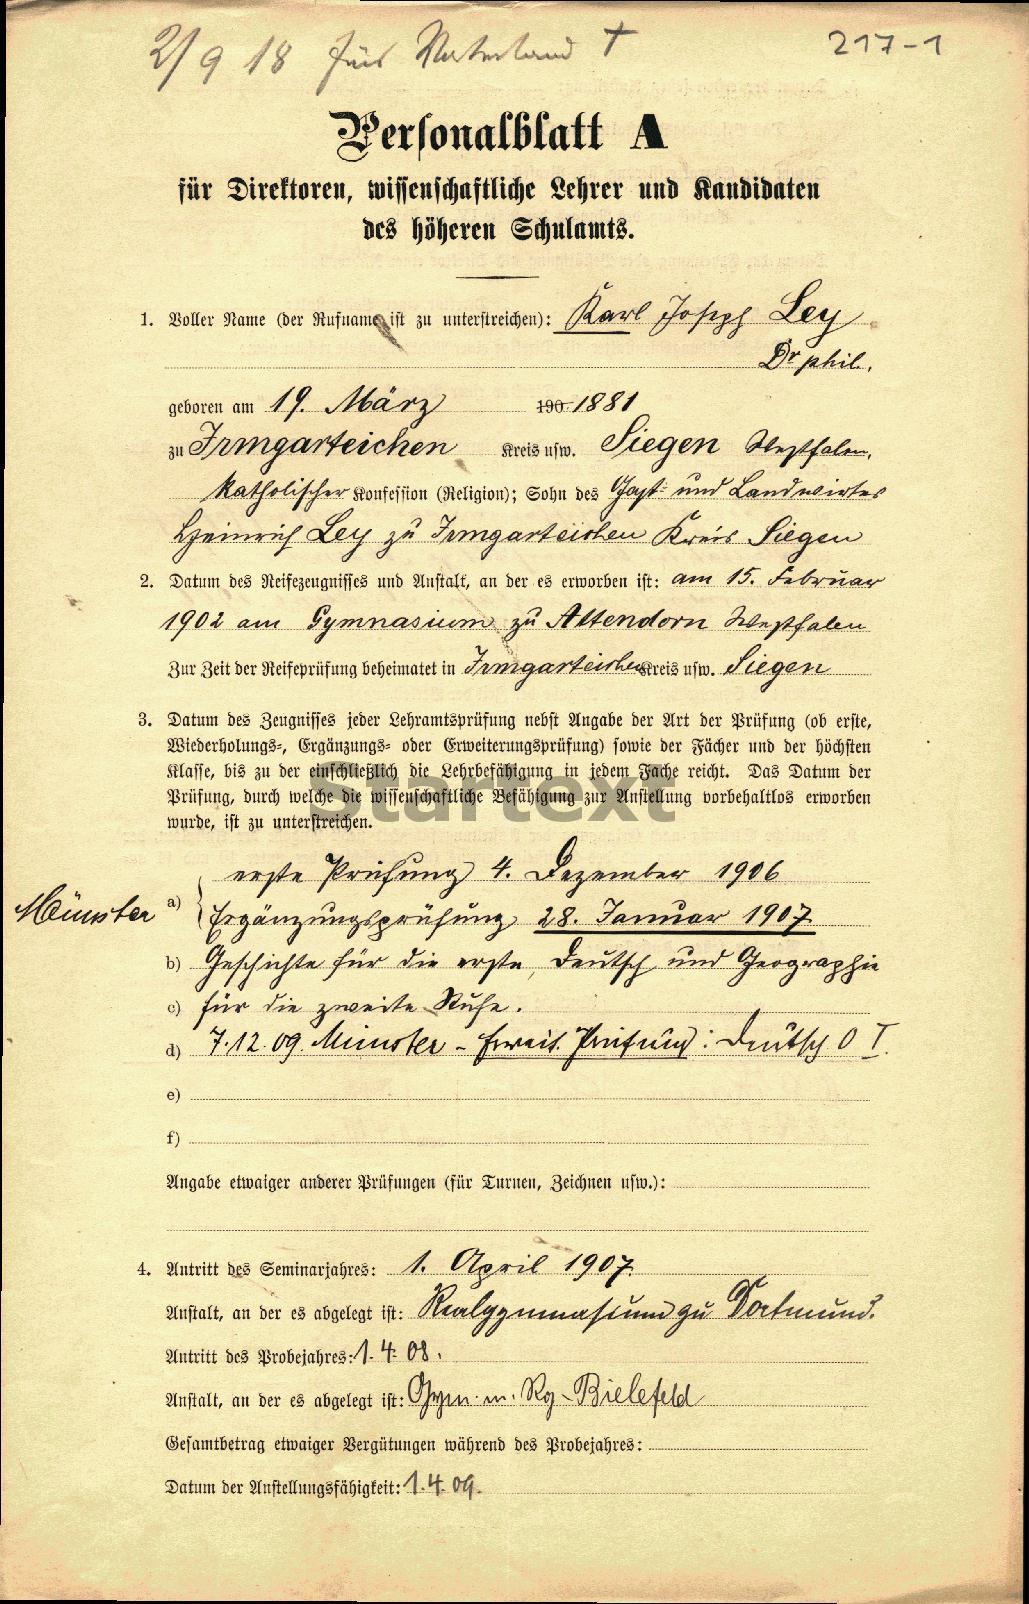 2/9 18 fürs Vaterland †
217-1
Personalblatt A
für Direktoren, wissenschaftliche Lehrer und Kandidaten
des höheren Schulamts.
1. Voller Name (der Rufname ist zu unterstreichen): Karl Joseph Ley
Dr phil.
geboren am 19. März 190 1881
zu Irmgarteichen Kreis usw. Siegen Westfalen,
katholischer Konfession (Religion); Sohn des Gast- und Landwirtes
Heinrich Ley zu Irmgarteichen Kreis Siegen
2. Datum des Reifezeugnisses und Anstalt, an der es erworben ist: am 15. Februar
1902 am Gymnasium zu Attendorn Westfalen
Zur Zeit der Reifeprüfung beheimatet in Irmgarteichen Kreis usw. Siegen
3. Datum des Zeugnisses jeder Lehramtsprüfung nebst Angabe der Art der Prüfung (ob erste,
Wiederholungs-, Ergänzungs- oder Erweiterungsprüfung) sowie der Fächer und der höchsten
Klasse, bis zu der einschließlich die Lehrbefähigung in jedem Fache reicht. Das Datum der
Prüfung, durch welche die wissenschaftliche Befähigung zur Anstellung vorbehaltlos erworben
wurde, ist zu unterstreichen.
Startext
erste Prüfung 4. Dezember 1906
Münster a) Ergänzungsprüfung 28. Januar 1907
b) Geschichte für die erste, Deutsch und Geographie
c) für die zweite Stufe.
d) 7.12.09. Münster - Erweit. Prüfung: Deutsch O I.
e)
f)
Angabe etwaiger anderer Prüfungen (für Turnen, Zeichnen usw.):
4. Antritt des Seminarjahres: 1. April 1907.
Anstalt, an der es abgelegt ist: Realgymnasium zu Dortmund.
Antritt des Probejahres: 1.4.08.
Anstalt, an der es abgelegt ist: Gym. m. Rg - Bielefeld
Gesamtbetrag etwaiger Vergütungen während des Probejahres:
Datum der Anstellungsfähigkeit: 1.4.09.